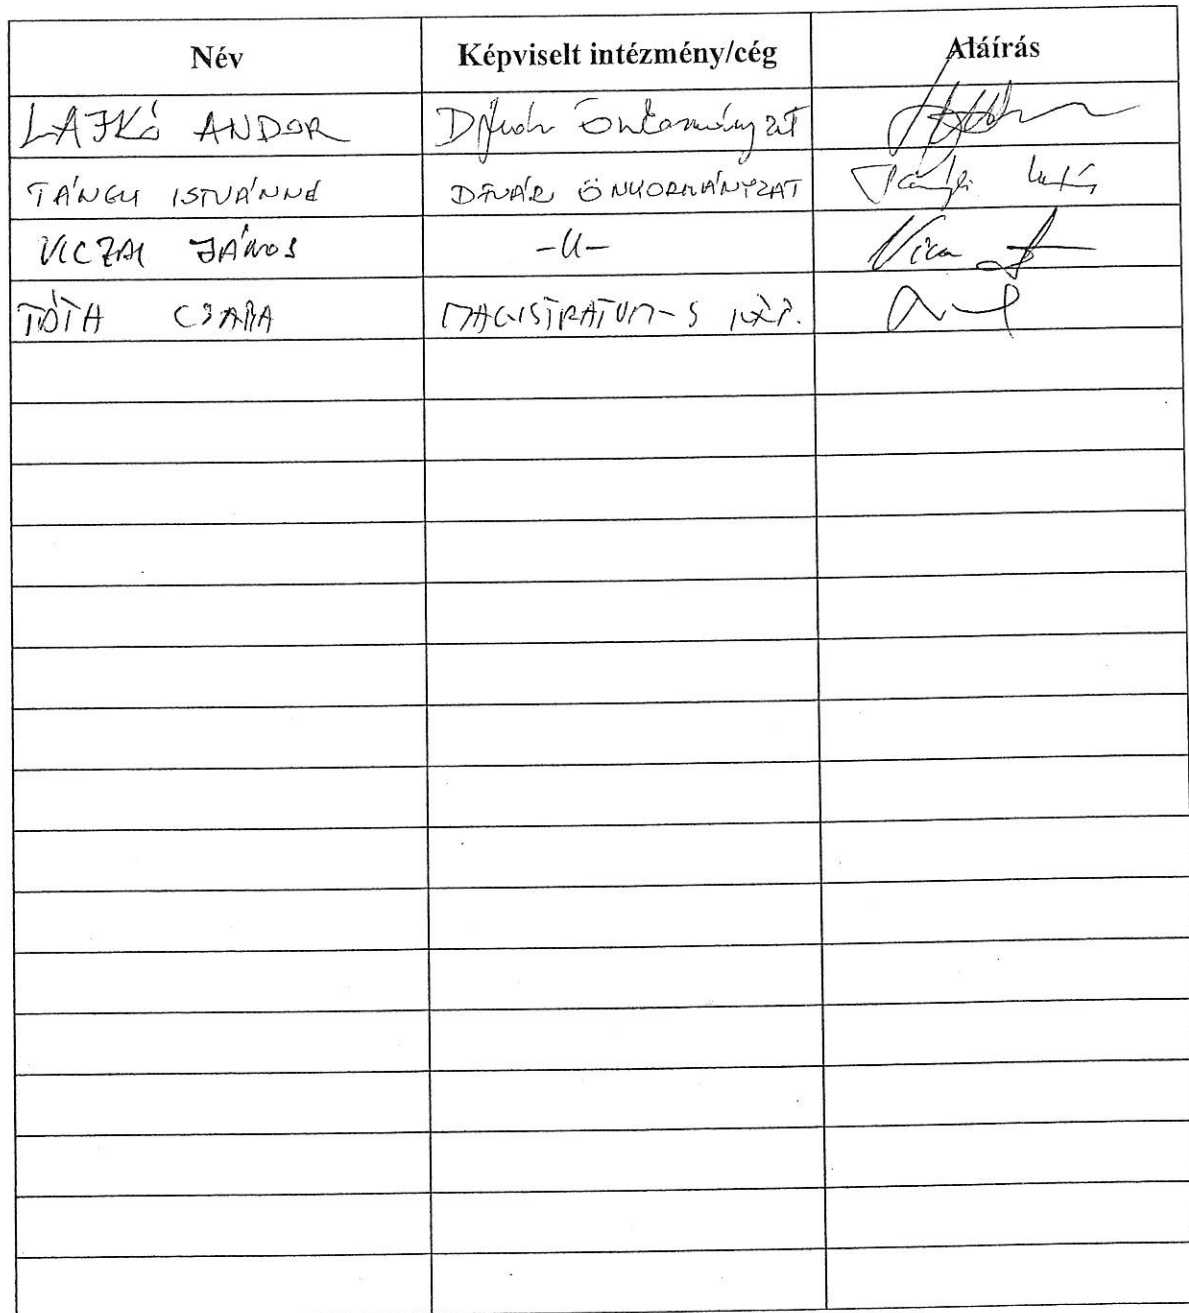 Név Képviselt intézmény/cég Aláírás
LAJKÓ ANDOR Önkormányzat
ISTVÁNNÉ ÖNKORMÁNYZAT
VICZAI JÁNOS -U-
TÓTH CSABA MAGISTRATUM-S KÉP.